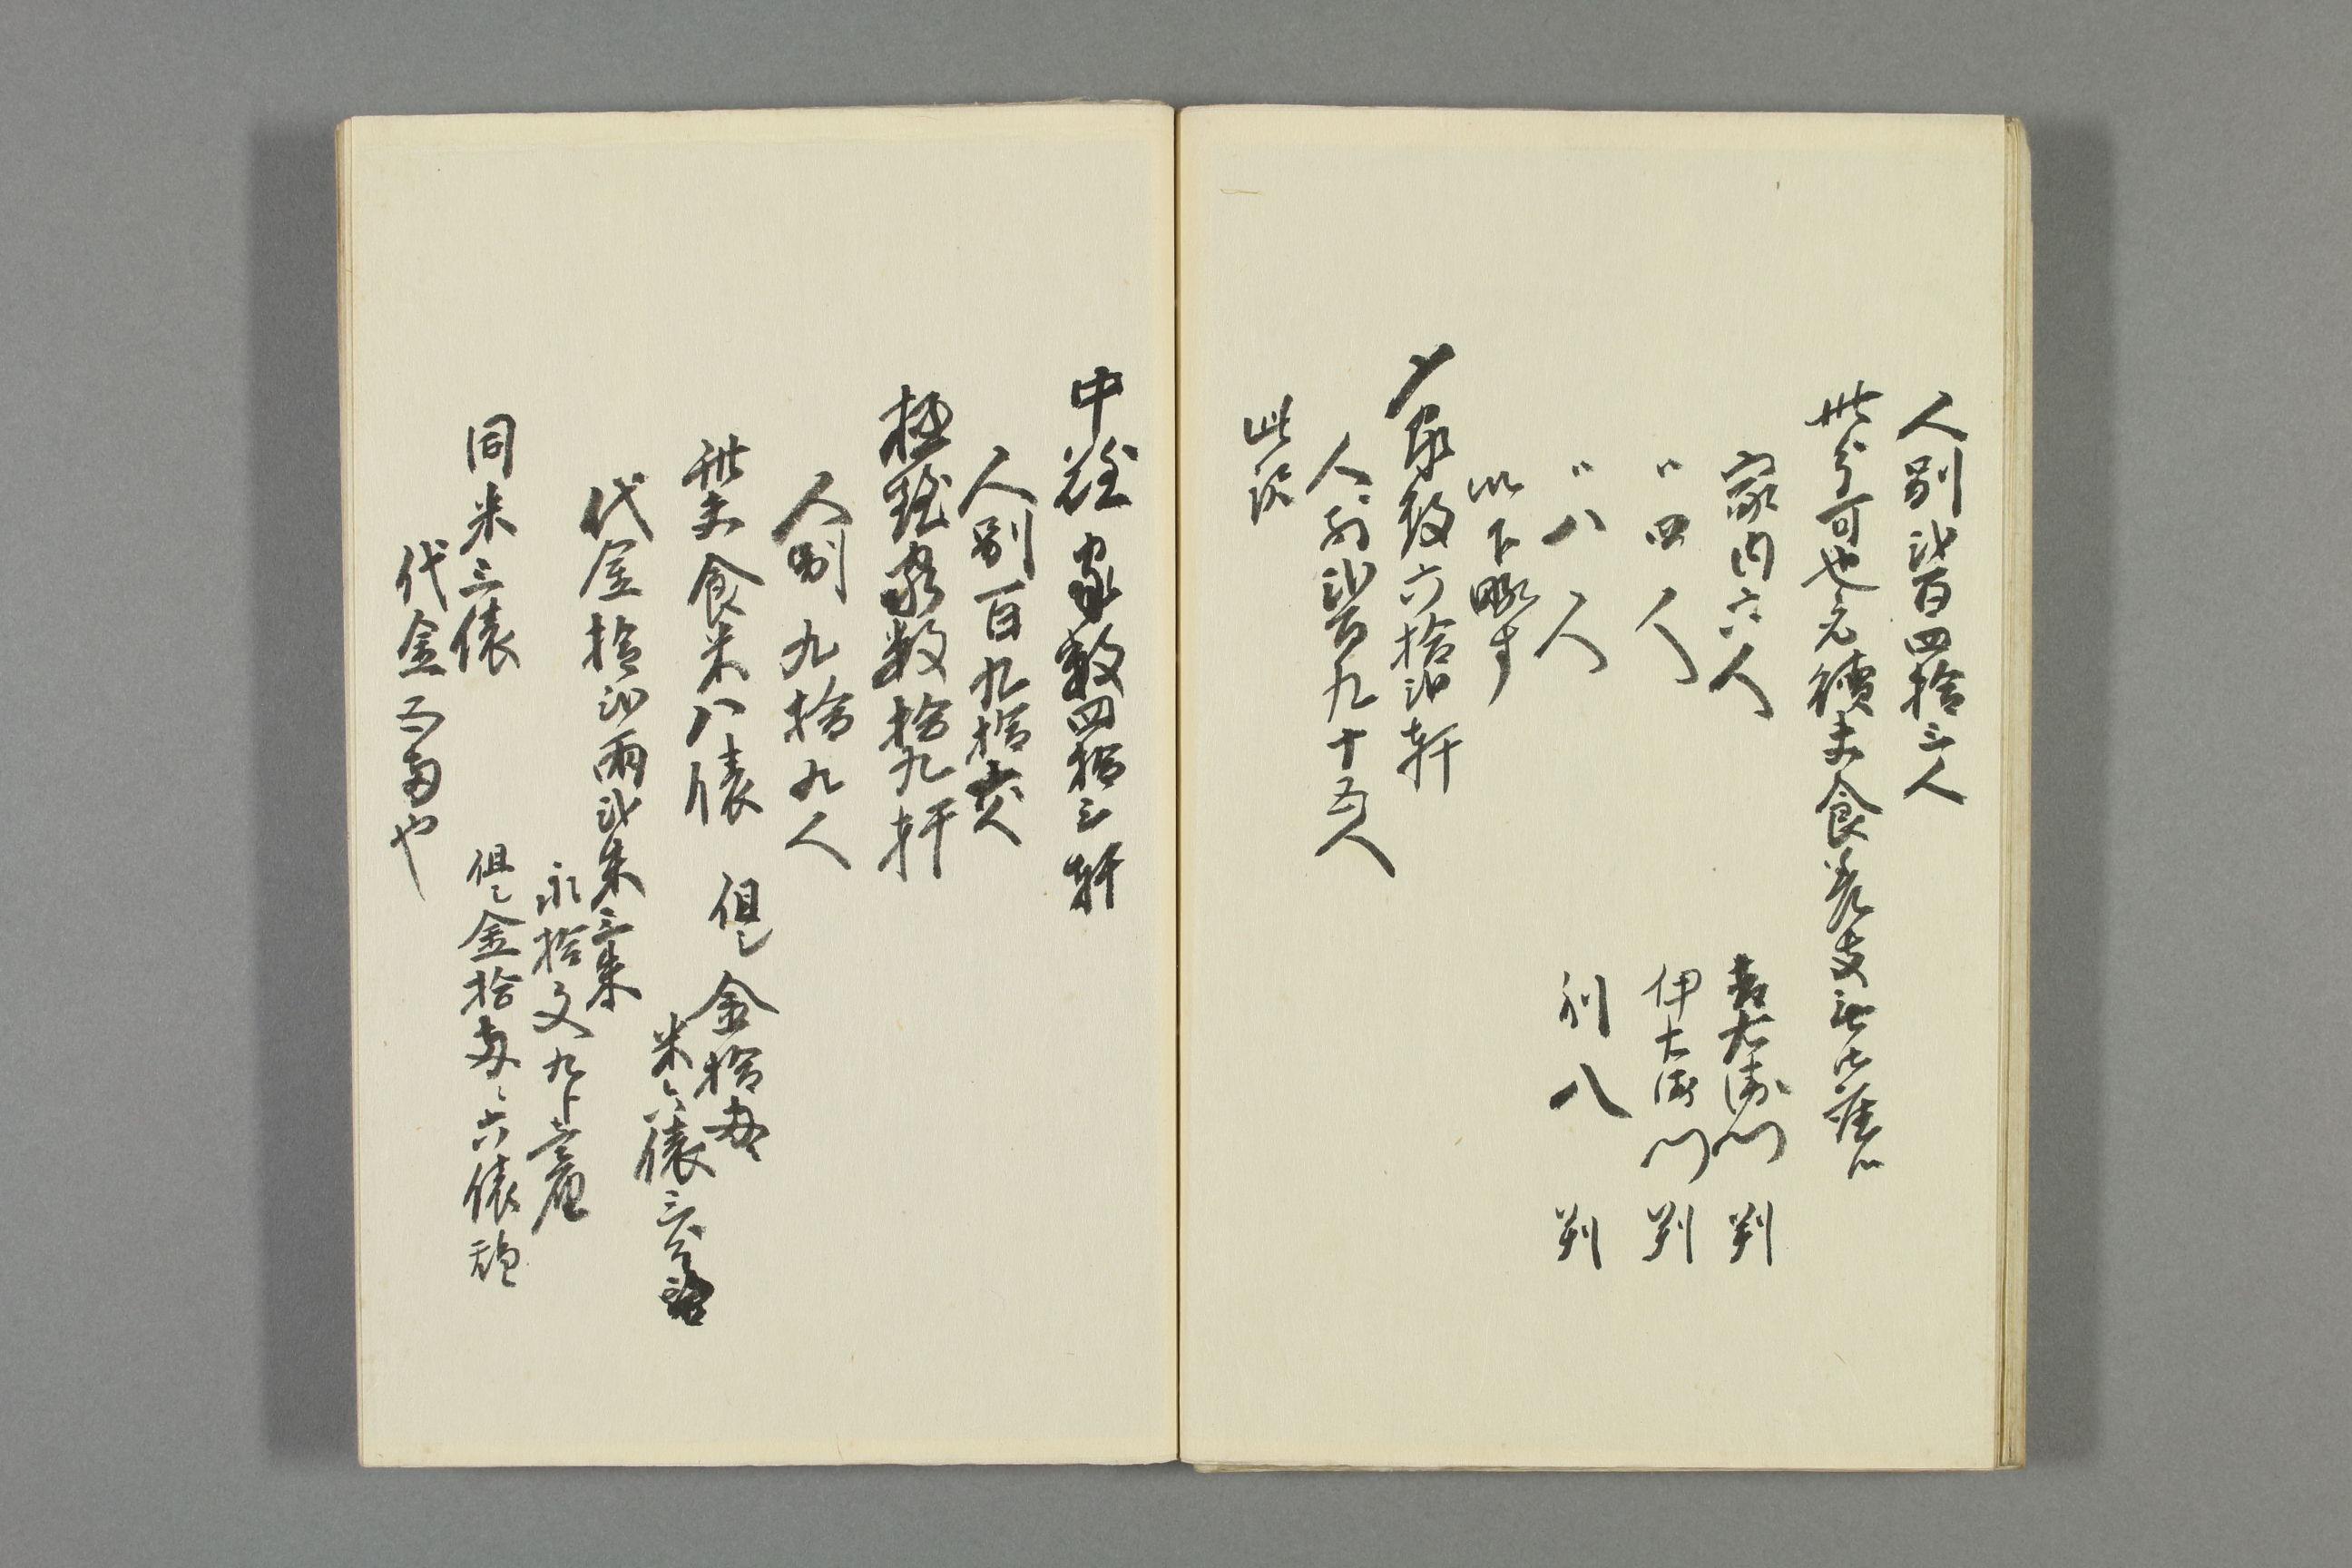 人別弐百四拾三人
此分可也元續夫食差支無御座候
家内六人 吉右衛門 判
〃四人 伊右衛門 判
〃八人 利八 判
以下略す
〆家数六拾弐軒
人別弐百九十五人
此訳
中難家数四拾三軒
人別百九拾六人
極難家数拾九軒
人別九拾九人
此夫食米八俵 但シ金拾両
米六俵三分
代金拾弐両弐朱三朱
永拾文九分壱厘
同米三俵 但シ金拾両六俵
代金五両也